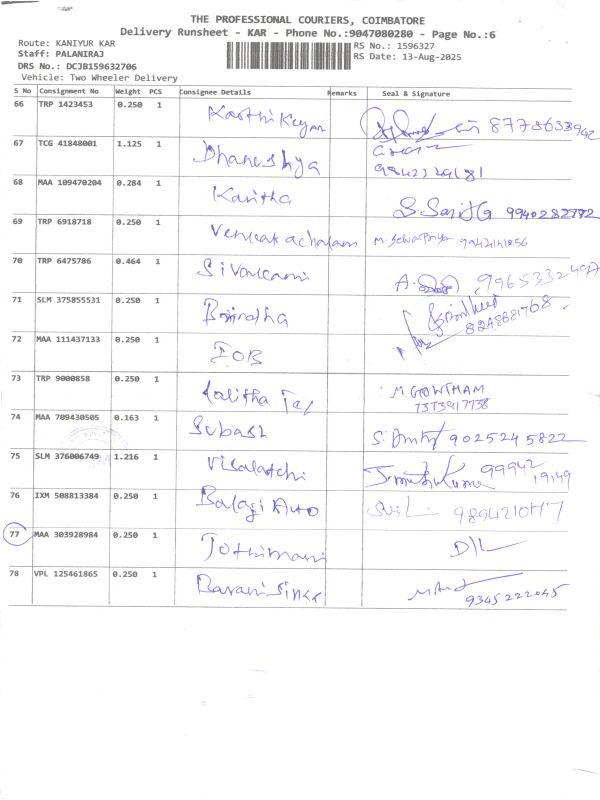 THE PROFESSIONAL COURIERS, COIMBATORE
Delivery Runsheet - KAR - Phone No.:9047080280 - Page No.:6
Route: KANIYUR KAR
RS No.: 1596327
Staff: PALANIRAJ
RS Date: 13-Aug-2025
DRS No.: DCJB159632706
Vehicle: Two Wheeler Delivery
S No Consignment No Weight PCS Consignee Details Remarks Seal & Signature
66 TRP 1423453 0.250 1 Karthi Keyan
67 TCG 41848001 1.125 1 Dhaneshya
68 MAA 109470204 0.284 1 Kavitha 9940282772
69 TRP 6918718 0.250 1 Venkatachalam
70 TRP 6475786 0.464 1
71 SLM 375855531 0.250 1
72 MAA 111437133 0.250 1 IOB
73 TRP 9000858 0.250 1 Lalitha M GOWTHAM
7373917738
74 MAA 709430505 0.163 1 Subash 9025245822
75 SLM 376006749 1.216 1 Visalatchi 99942
19149
76 IXM 508813384 0.250 1 Balaji Auto
77 MAA 303928984 0.250 1 Jothimani
78 VPL 125461865 0.250 1
9345222045